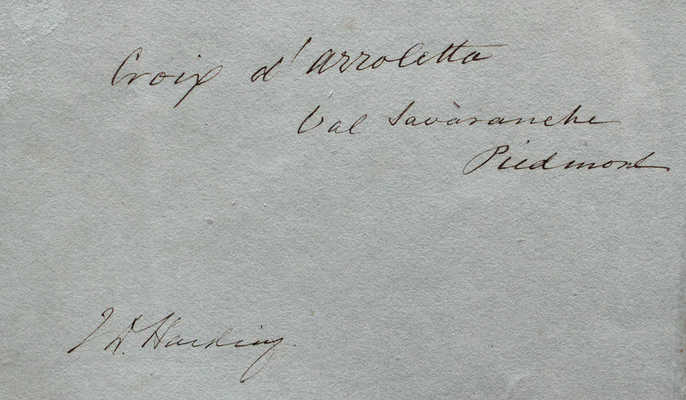 Croix d' Arroletta
Val Savàranche
Piedmont
J D. Harding.